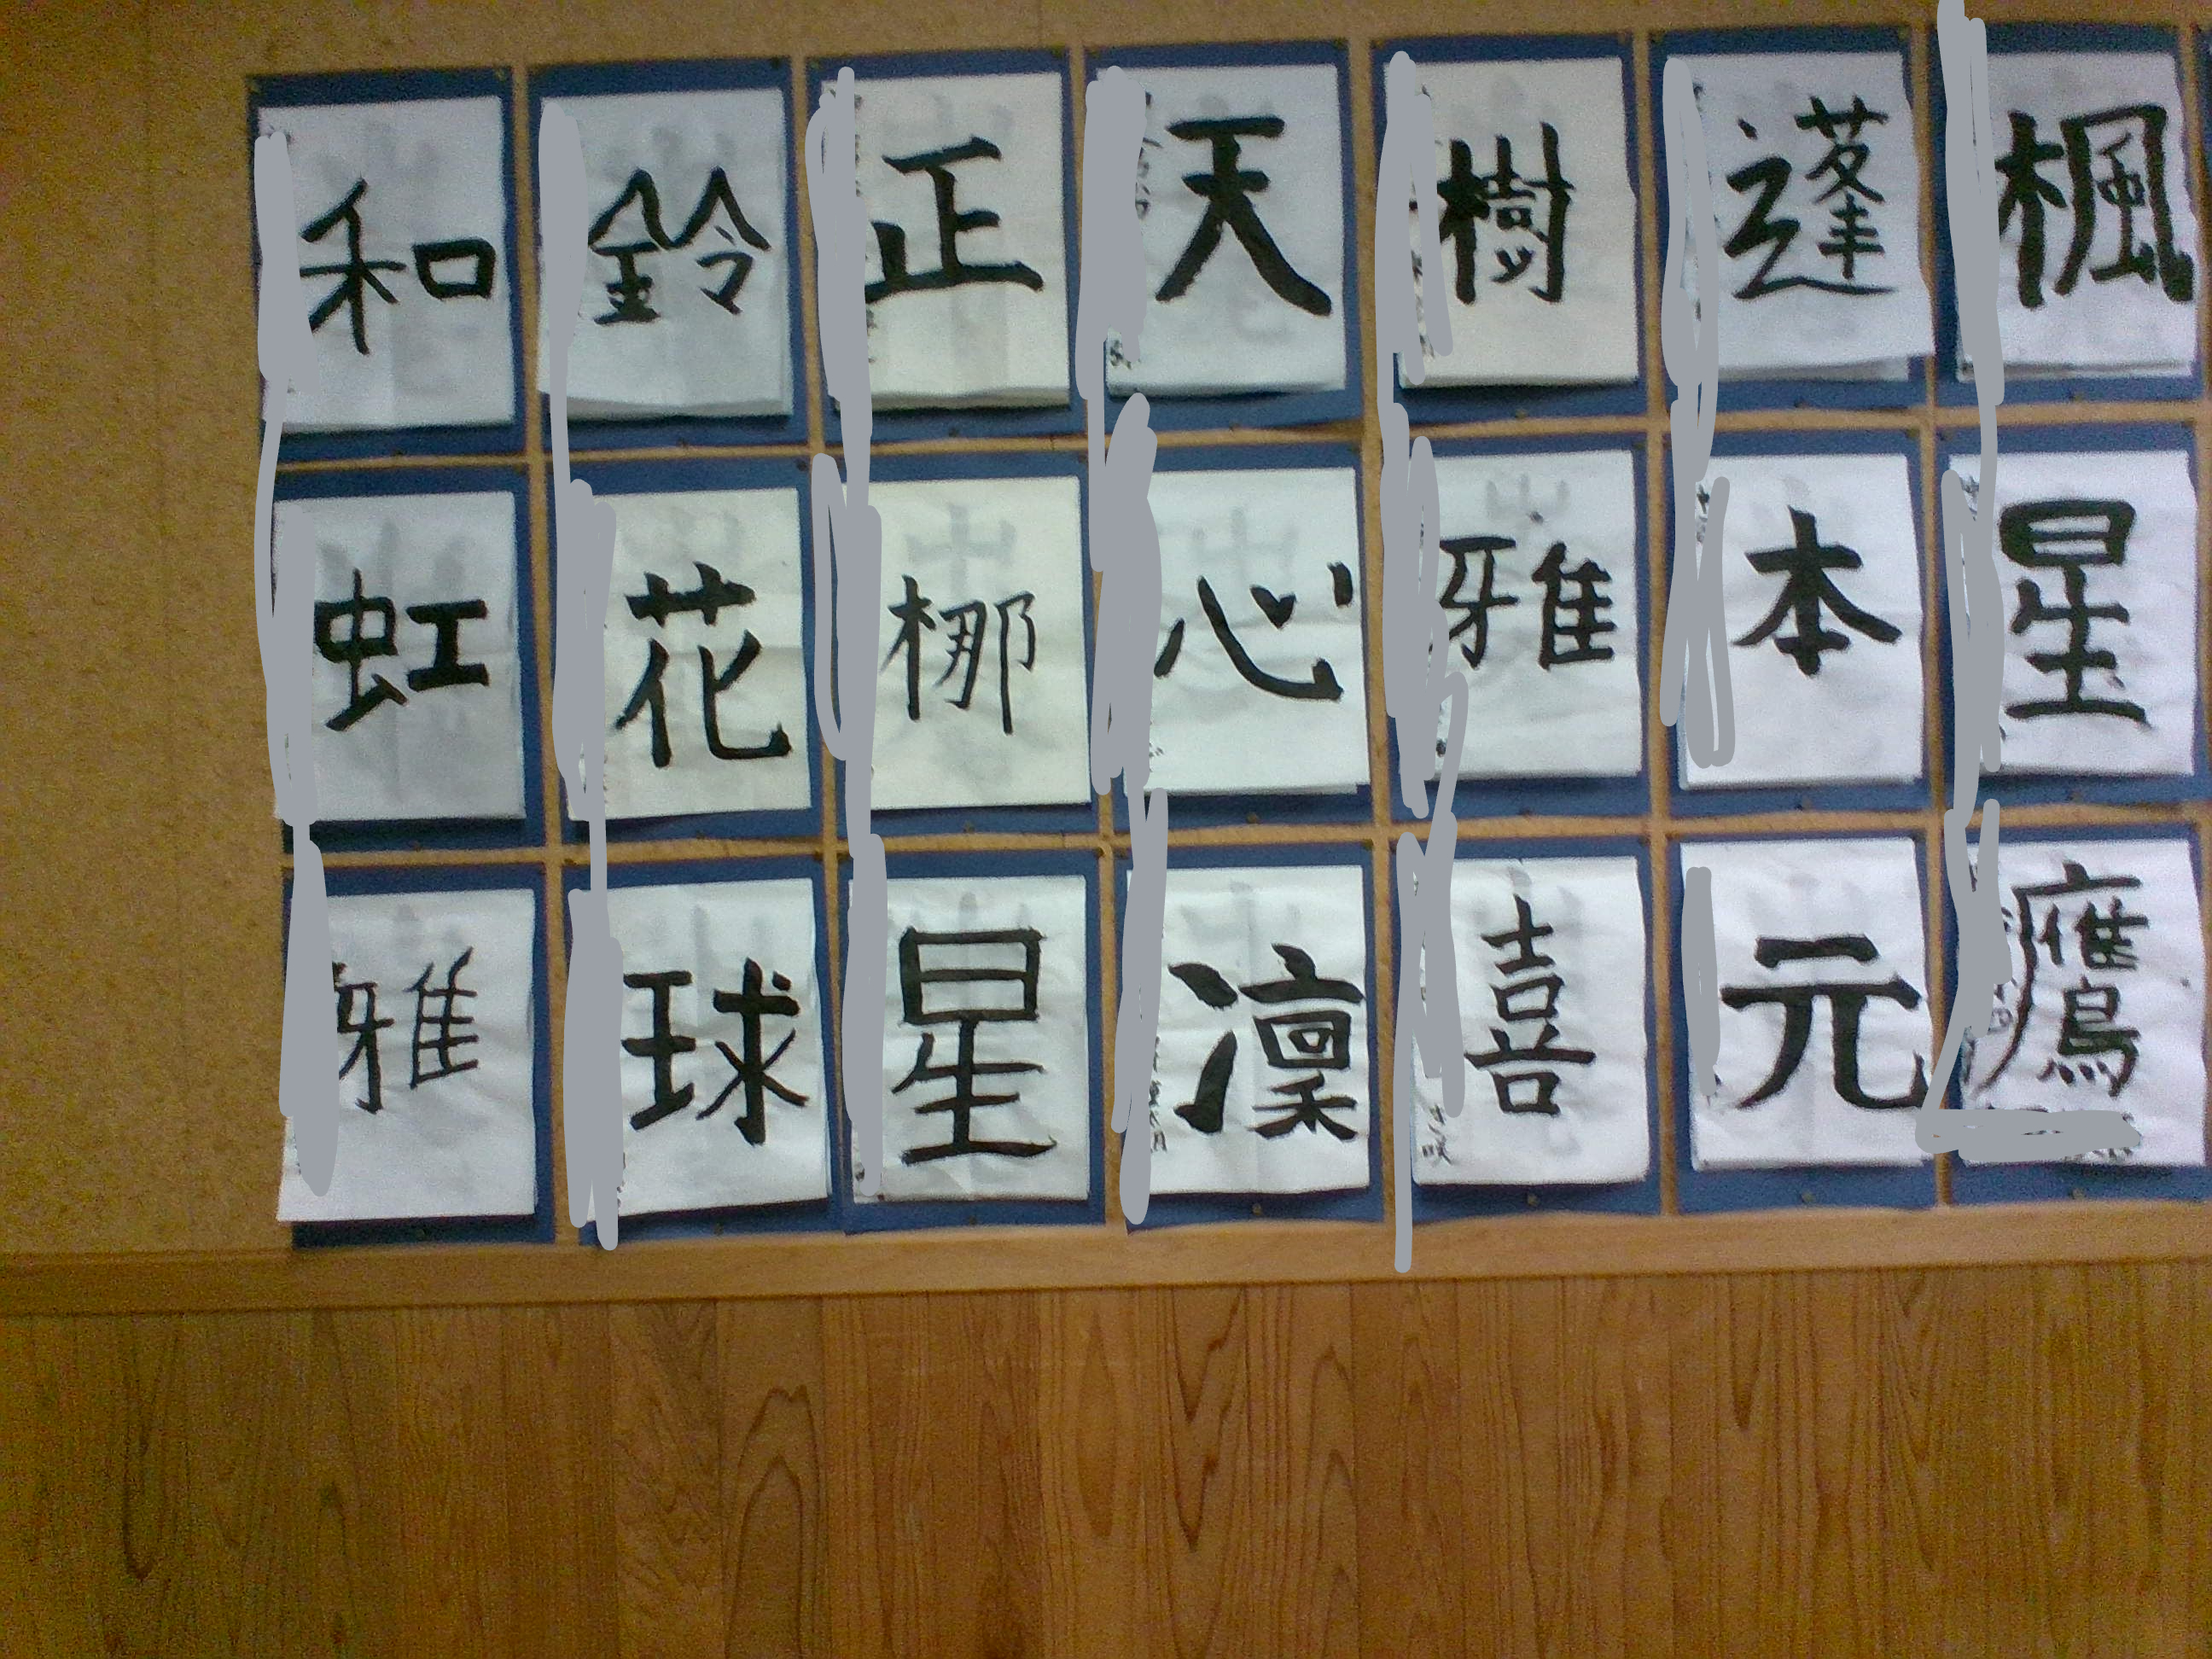 和 鈴 正 天 樹 蓬 楓
虹 花 梛 心 雅 本 星
雅 球 星 凜 喜 元 鷹